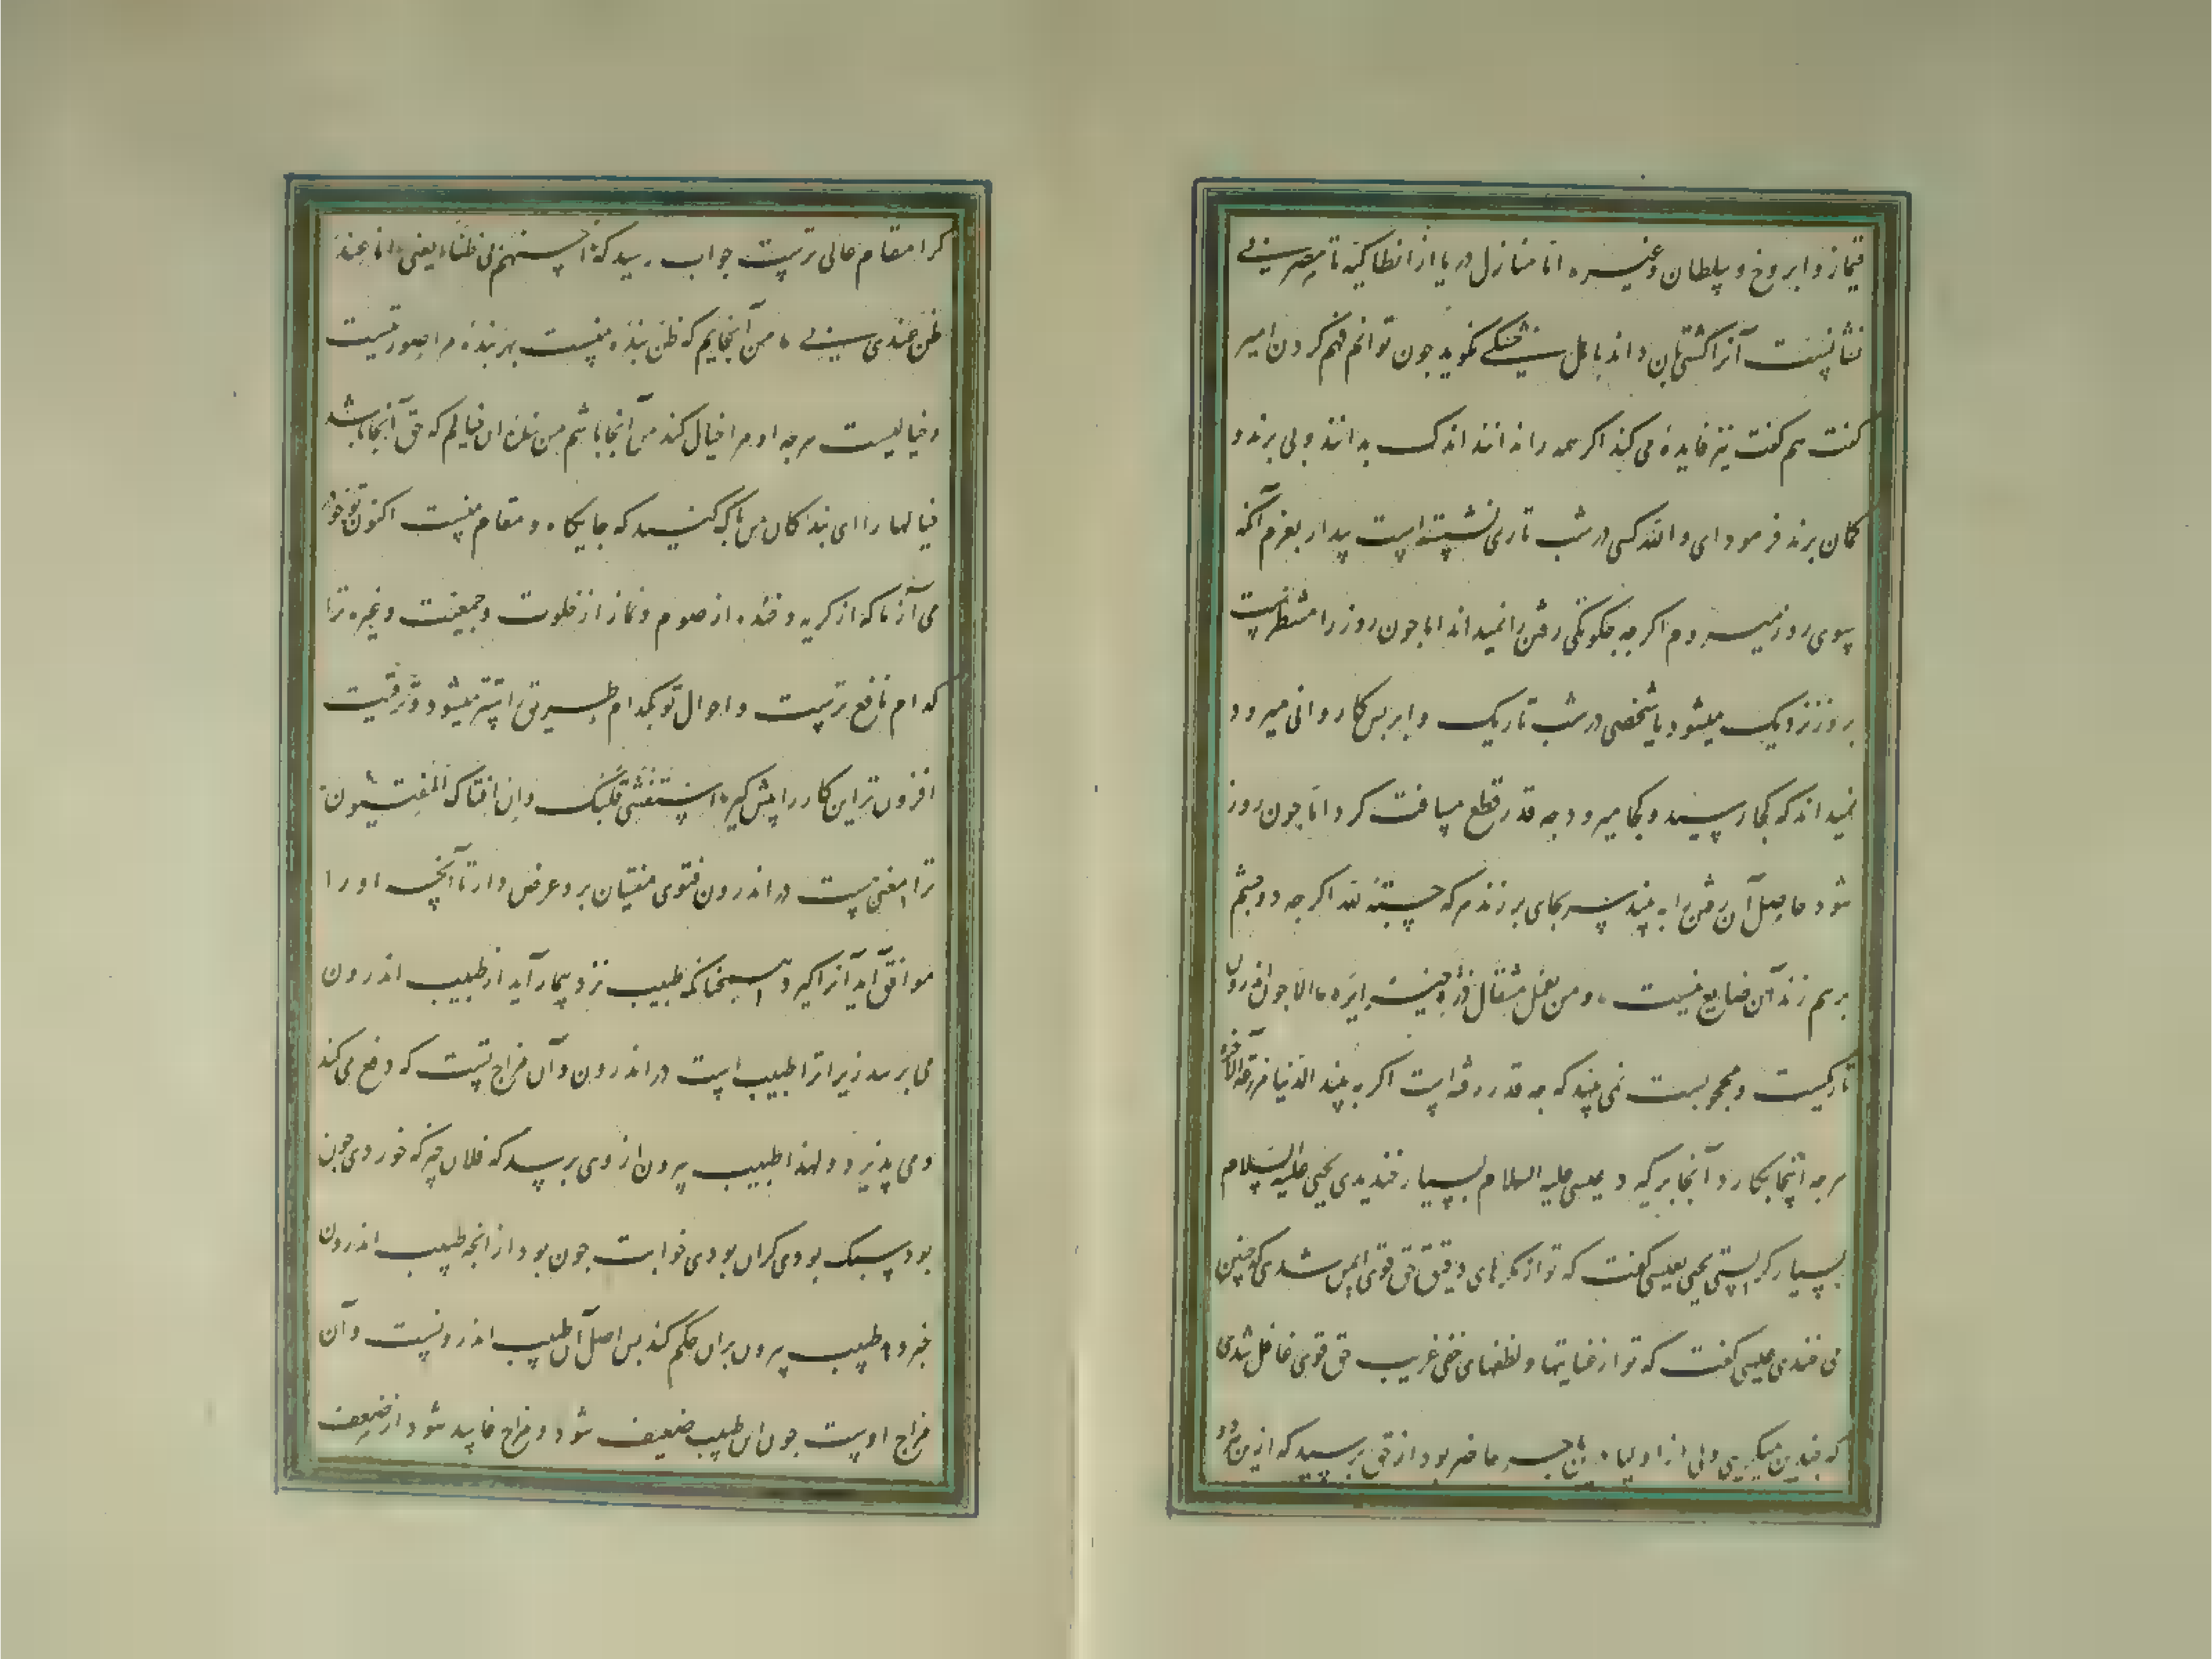 قیماز و ابروخ و سلطان و غیره اما منازل دریا از انطاکیه تا مصر بی
نشانست آنرا کشتیبان داند با اهل خشکی نگوید جون توانم فهم کردن امیر
کفت هم کفت نیز فایده می کند اکر همه را ندانند اندک بدانند و بی برند و
کمان برند فرمود ای والله کسی در شب تاری نشسته است بیدار بعزم آنکه
سوی روز میروم اکرجه جکونکی رفتن را نمیداند اما جون روز را منتظرست
بروز نزدیک میشود یا شخصی در شب تاریک و ابر بس کاروانی میرود
نمیداند که کجا رسید و کجا میرود و جه قدر قطع مسافت کرد اما جون روز
شود حاصل آن رفتن را به بیند سر بجای بر زند هرکه حسبة لله اکرجه دو جشم
بر هم زند آن ضایع نیست و من یعمل مثقال ذرة خیرا یره الا جون اندرون
تاریکیست و محجوبست نمی بیند که جه قدر رفته است اخر به بیند الدنیا مزرعة الآخرة
هرجه اینجا بکارد آنجا بر کیرد عیسی علیه السلام بسیار خندیدی یحیی علیه السلام
بسیار کریستی یحیی بعیسی کفت که تو از مکرهای دقیق حق قوی ایمن شدی که جنین
می خندی عیسی کفت که تو از عنایتها و لطفهای خفی غریب حق قوی غافل شدی
که جندین میکریی ولی از اولیاء حق در این ماجرا حاضر بود از حق برسید که ازین هر دو
کرا مقام عالی ترست جواب رسید که احسنهم بی ظنا یعنی انا عند
ظن عبدی بی من آنجایم که ظن بنده منست بهر بنده مرا صورتیست
و خیالیست هرجه او مرا خیال کند من آنجا باشم من بنده آن خیالم که حق آنجا باشد
خیالها را ای بندکان من باک کنید که جایکاه و مقام منست اکنون تو خود را
می آزما که از کریه و خنده از صوم و نماز از خلوت و جمعیت و غیره ترا
کدام نافع ترست و احوال تو بکدام طریق راست تر میشود و ترقیت
افزون تر این کار را بیش کیر استفت قلبک و إن افتاک المفتون
ترا مفتی هست در اندرون فتوی مفتیان برو عرض دار تا آنچه او را
موافق آید آنرا کیرد همچنانکه طبیب نزد بیمار آید از طبیب اندرون
می برسد زیرا ترا طبیب است در اندرون و آن مزاج تست که دفع می کند
و می بذیرد و لهذا طبیب بیرون از وی برسد که فلان چیز که خوردی چون
بود سبک بودی کران بودی خوابت جون بود از آنچه طبیب اندرون
خبر دهد طبیب بیرون بران حکم کند بس اصل آن طبیب اندرونست و آن
مزاج اوست جون این طبیب ضعیف شود و مزاج فاسد شود از ضعف